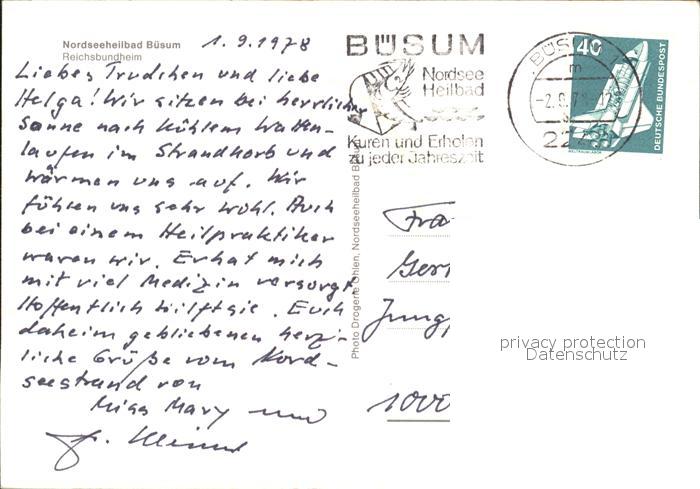 Nordseeheilbad Büsum
Reichsbundheim
1.9.1978
Liebes Trudchen und liebe
Helga! Wir sitzen bei herrlicher
Sonne nach kühlem Watten-
laufen im Strandkorb und
wärmen uns auf. Wir
fühlen uns sehr wohl. Auch
bei einem Heilpraktiker
waren wir. Er hat mich
mit viel Medizin versorgt.
Hoffentlich hilft sie. Euch
daheim gebliebenen herz-
liche Grüße vom Nord-
seestrand von
Miss Mary und
Photo Drogerie Ohlen, Nordseeheilbad Büsum
BÜSUM
Nordsee
Heilbad
Kuren und Erholen
zu jeder Jahreszeit
BÜS
m
-2.9.7
224
40
DEUTSCHE BUNDESPOST
WELTRAUMLABOR
Fra
Ger
Jung
1000
privacy protection
Datenschutz